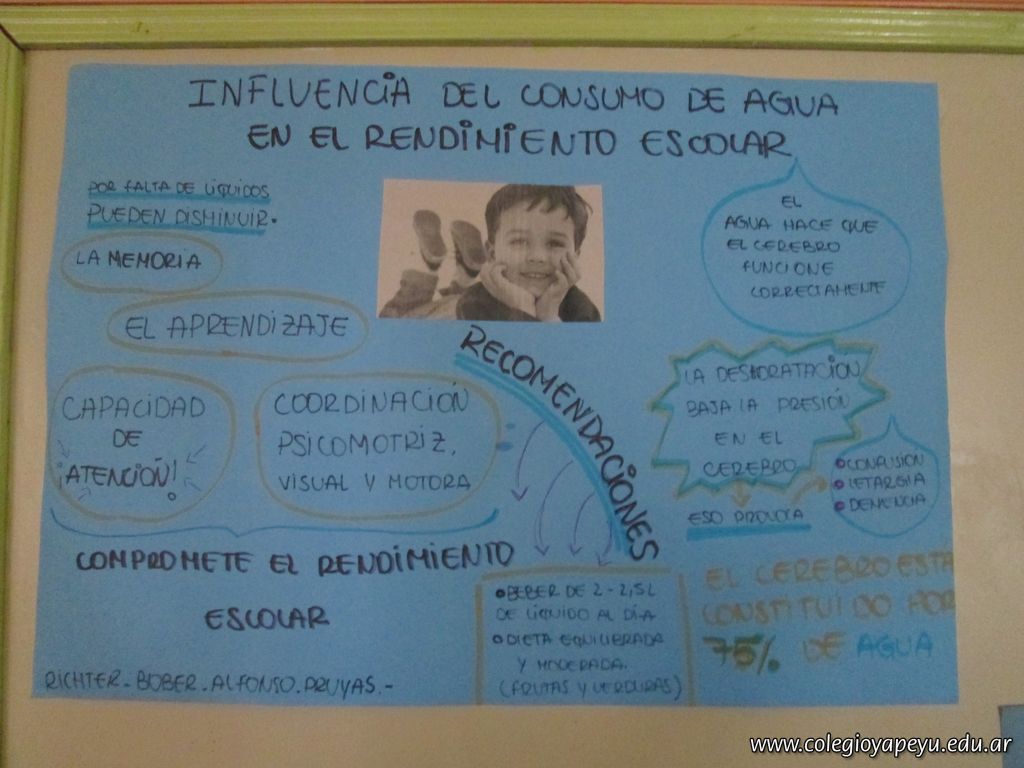 INFLUENCIA DEL CONSUMO DE AGUA
EN EL RENDIMIENTO ESCOLAR
POR FALTA DE LÍQUIDOS
PUEDEN DISMINUIR.
LA MEMORIA
EL APRENDIZAJE
CAPACIDAD
DE
¡ATENCIÓN!
COORDINACIÓN
PSICOMOTRIZ,
VISUAL Y MOTORA
COMPROMETE EL RENDIMIENTO
ESCOLAR
RICHTER-BOBER.ALFONSO.PRUYAS.-
RECOMENDACIONES
• BEBER DE 2-2,5L
DE LÍQUIDO AL DÍA
• DIETA EQUILIBRADA
Y MODERADA.
(FRUTAS Y VERDURAS)
EL
AGUA HACE QUE
EL CEREBRO
FUNCIONE
CORRECTAMENTE
LA DESHIDRATACIÓN
BAJA LA PRESIÓN
EN EL
CEREBRO
ESO PROVOCA
• CONFUSIÓN
• LETARGIA
• DEMENCIA
EL CEREBRO ESTÁ
CONSTITUIDO POR
75% DE AGUA
www.colegioyapeyu.edu.ar